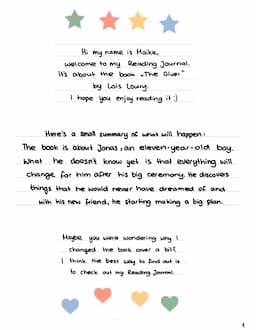 Hi my name is Maike,
welcome to my Reading Journal.
It's about the book „The Giver"
by Lois Lowry.
I hope you enjoy reading it :)
Here's a small summary of what will happen:
The book is about Jonas, an eleven-year-old boy.
What he doesn't know yet is that everything will
change for him after his big ceremony. He discovers
things that he would never have dreamed of and
with his new friend, he starting making a big plan.
Maybe you were wondering why I
changed the book cover a bit?
I think the best way to find out is
to check out my Reading Journal.
1